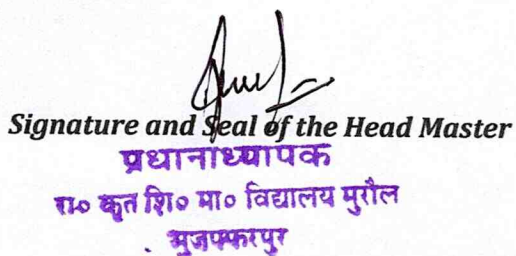 Signature and Seal of the Head Master
प्रधानाध्यापक
रा० कृत शि० मा० विद्यालय मुरौल
मुजफ्फरपुर